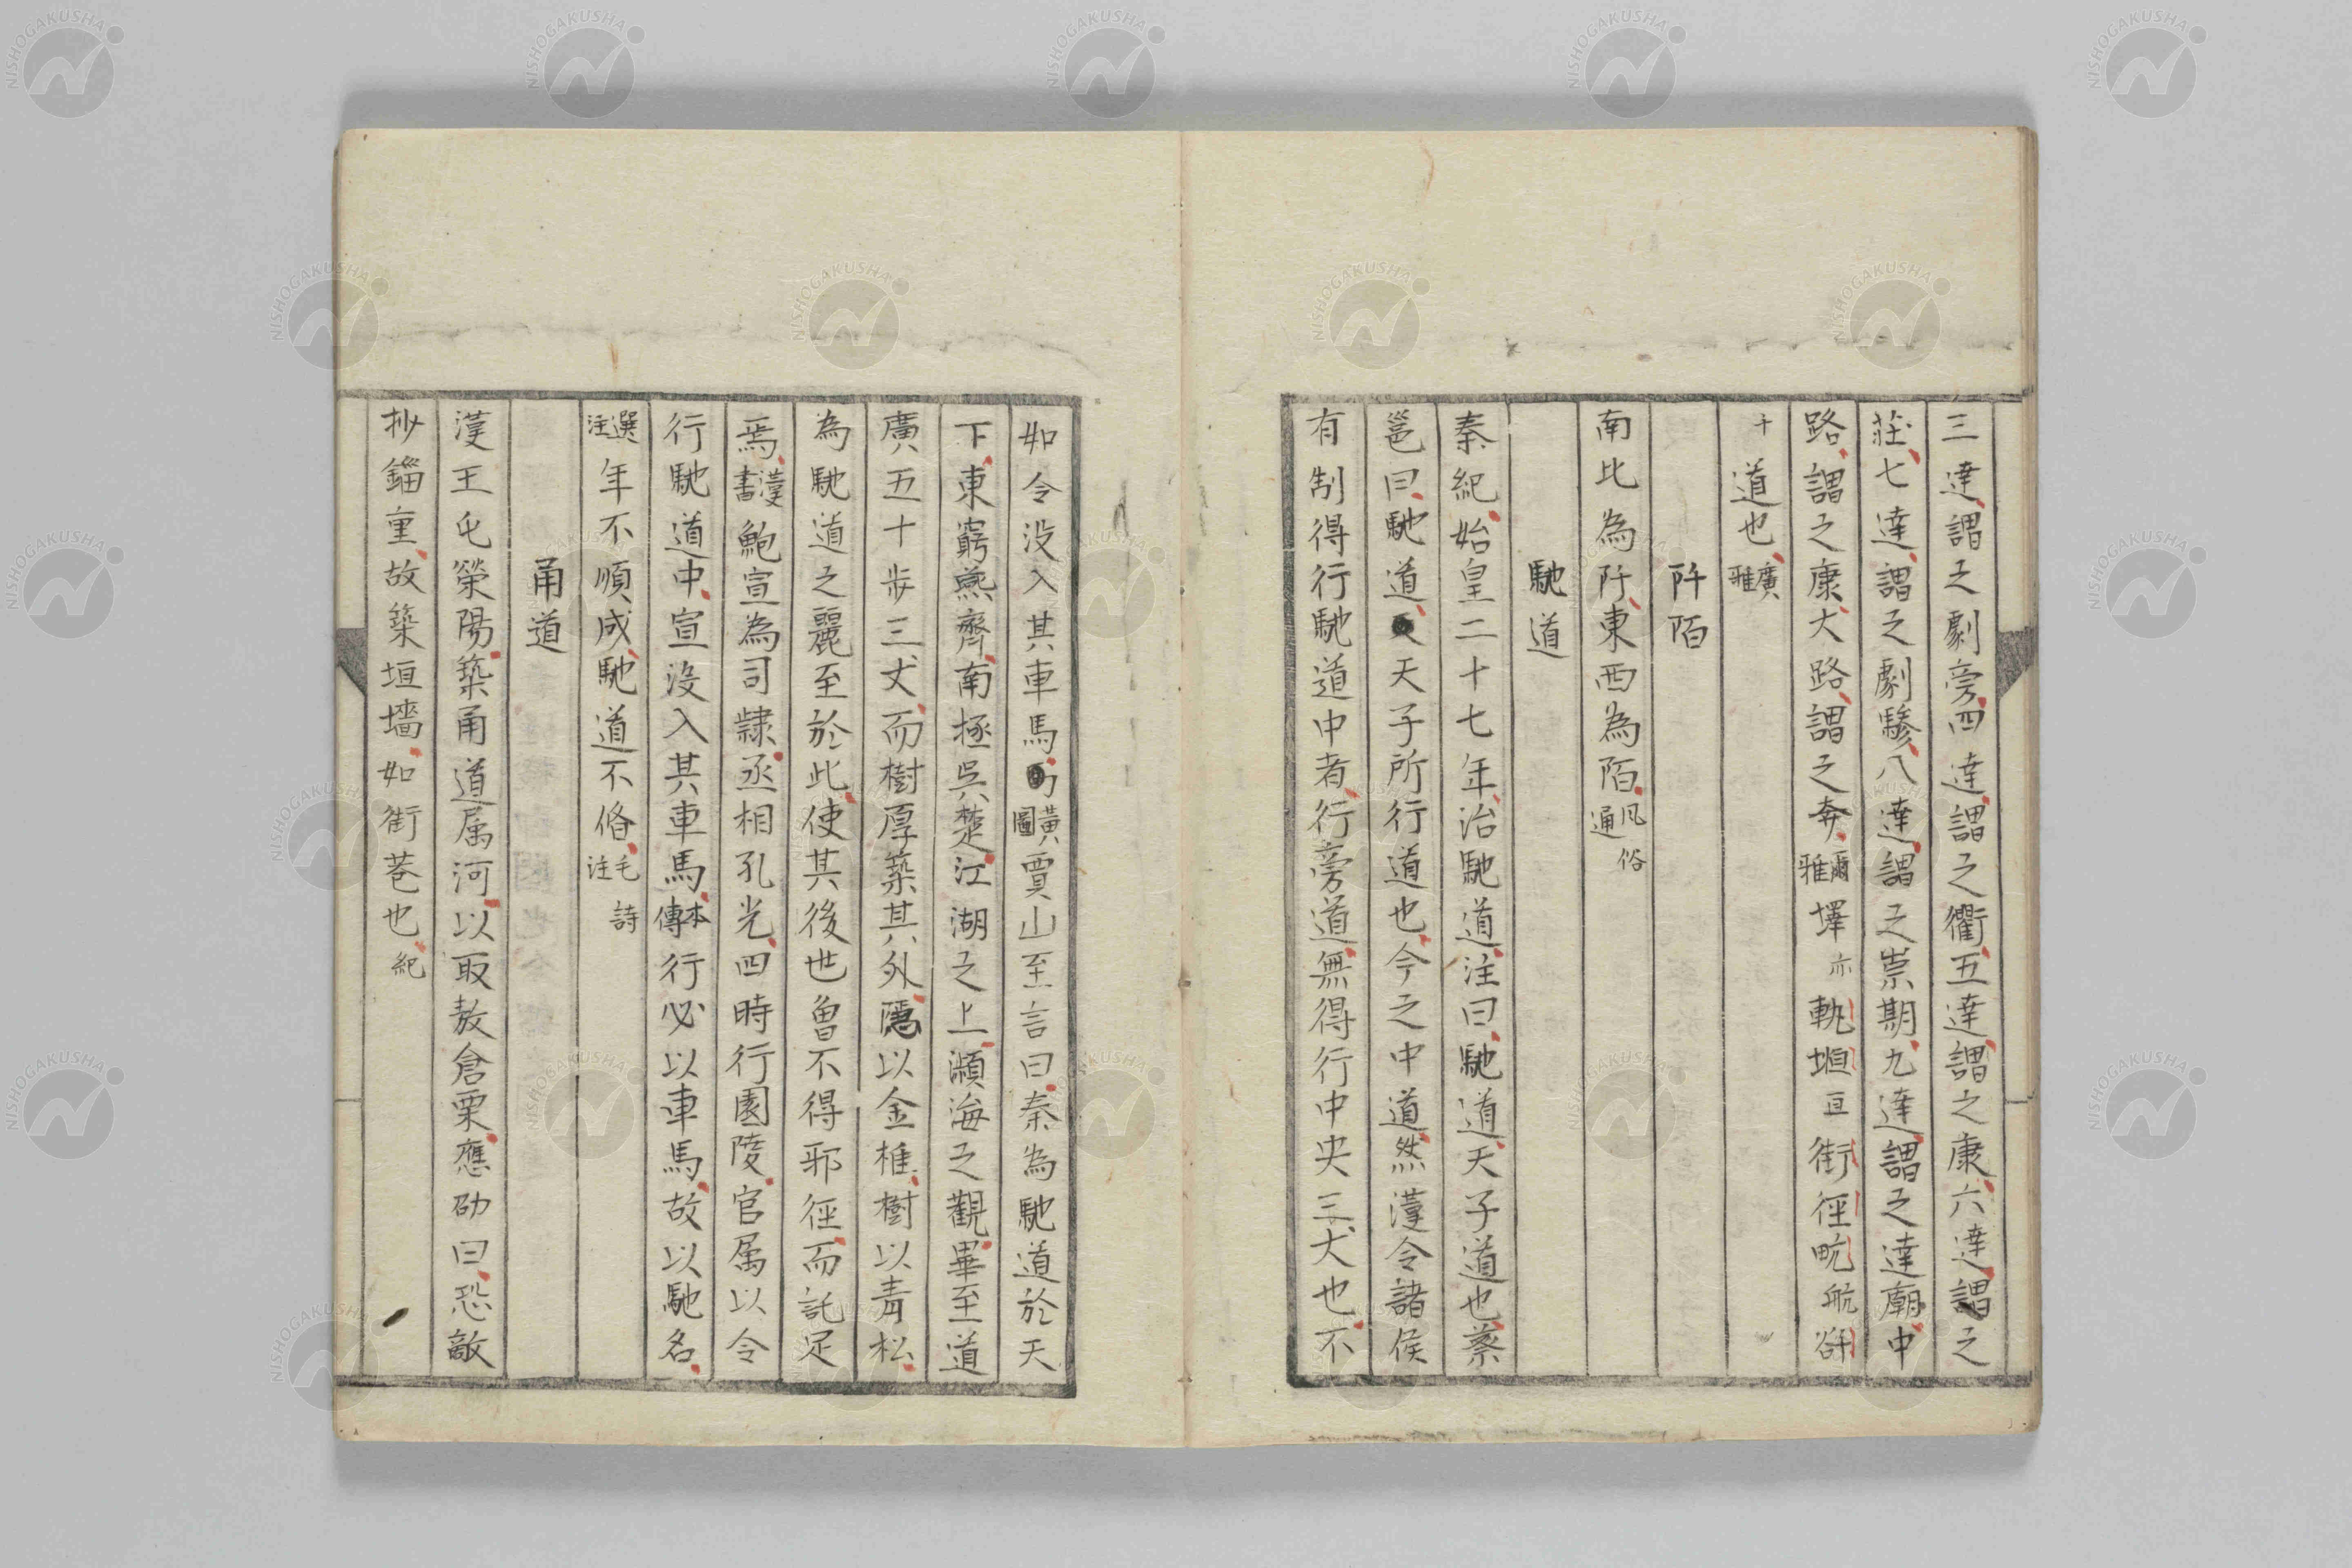 三達謂之劇旁四達謂之衢五達謂之康六達謂之
莊七達謂之劇驂八達謂之崇期九達謂之逵廟中
路謂之康大路謂之奔爾雅墿亦軌𡊮亘街徑畩航谸
十道也廣雅
阡陌
南北為阡東西為陌風俗通
馳道
秦紀始皇二十七年治馳道注曰馳道天子道也蔡
邕曰馳道天子所行道也今之中道然漢令諸侯
有制得行馳道中者行旁道無得行中央三丈也不
如令没入其車馬黃圖賈山至言曰秦為馳道於天
下東窮燕齊南極吳楚江湖之上瀕海之觀畢至道
廣五十步三丈而樹厚築其外隱以金椎樹以青松
為馳道之麗至於此使其後世曾不得邪徑而託足
焉漢書鮑宣為司隷丞相孔光四時行園陵官属以令
行馳道中宣没入其車馬本傳行必以車馬故以馳名
選注年不順成馳道不脩毛詩注
甬道
漢王屯榮陽築甬道属河以取敖倉粟應劭曰恐敵
抄錙重故築垣墻如街巷也紀
NISHOGAKUSHA